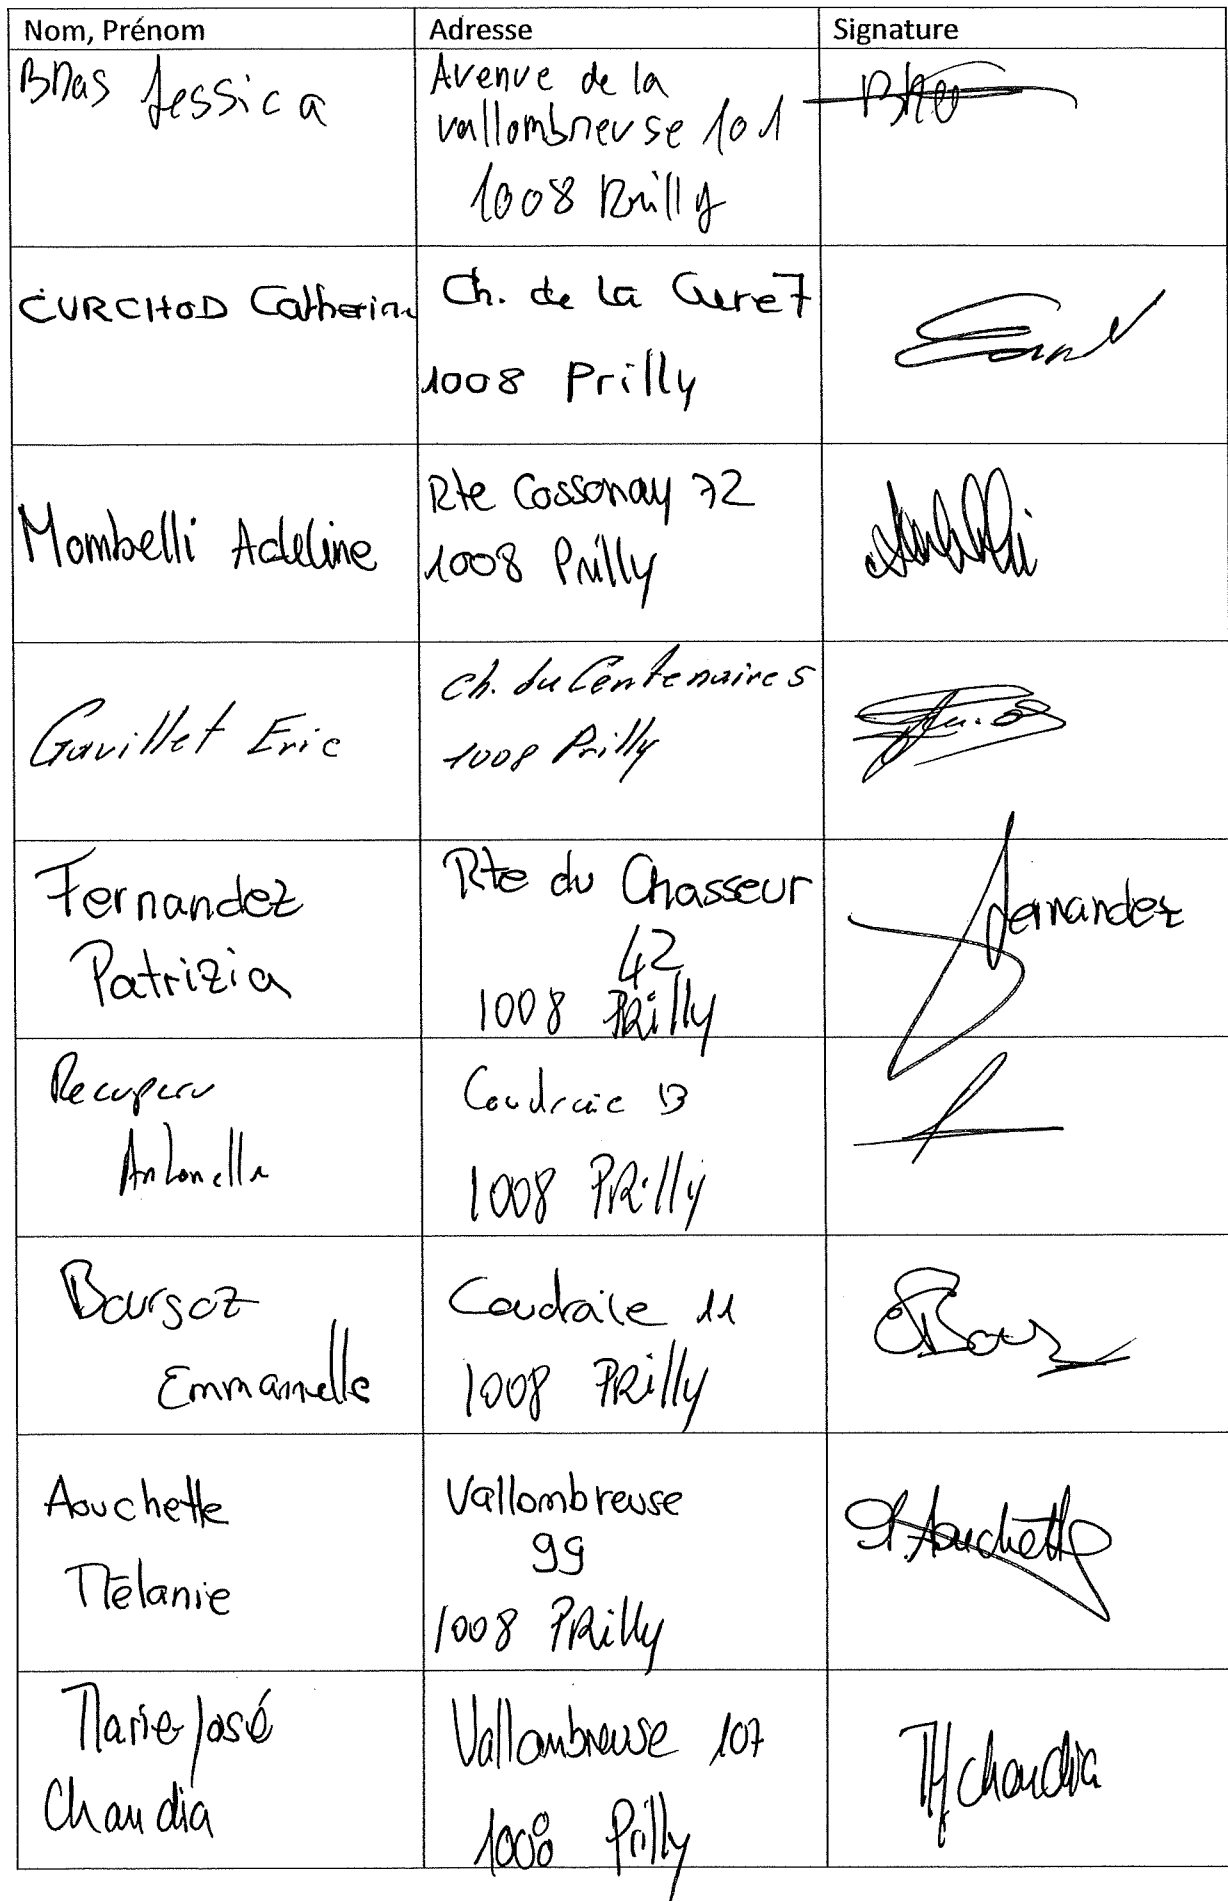 Nom, Prénom Adresse Signature
Bras Jessica
Avenue de la
vallombreuse 101
1008 Prilly
CURCHOD Catherine
Ch. de la Cure 7
1008 Prilly
Mombelli Adeline
Rte Cossonay 72
1008 Prilly
Gavillet Eric
Ch. du Centenaire 5
1008 Prilly
Fernandez
Patrizia
Rte du Chasseur
42
1008 PRilly
Fernandez
Recupero
Antonella
Coudraie 13
1008 PRilly
Boursoz
Emmanuelle
Coudraie 11
1008 PRilly
Aouchette
Mélanie
Vallombreuse
99
1008 PRilly
M. Aouchette
Marie José
Chaudia
Vallombreuse 107
1008 Prilly
MJ Chaudia